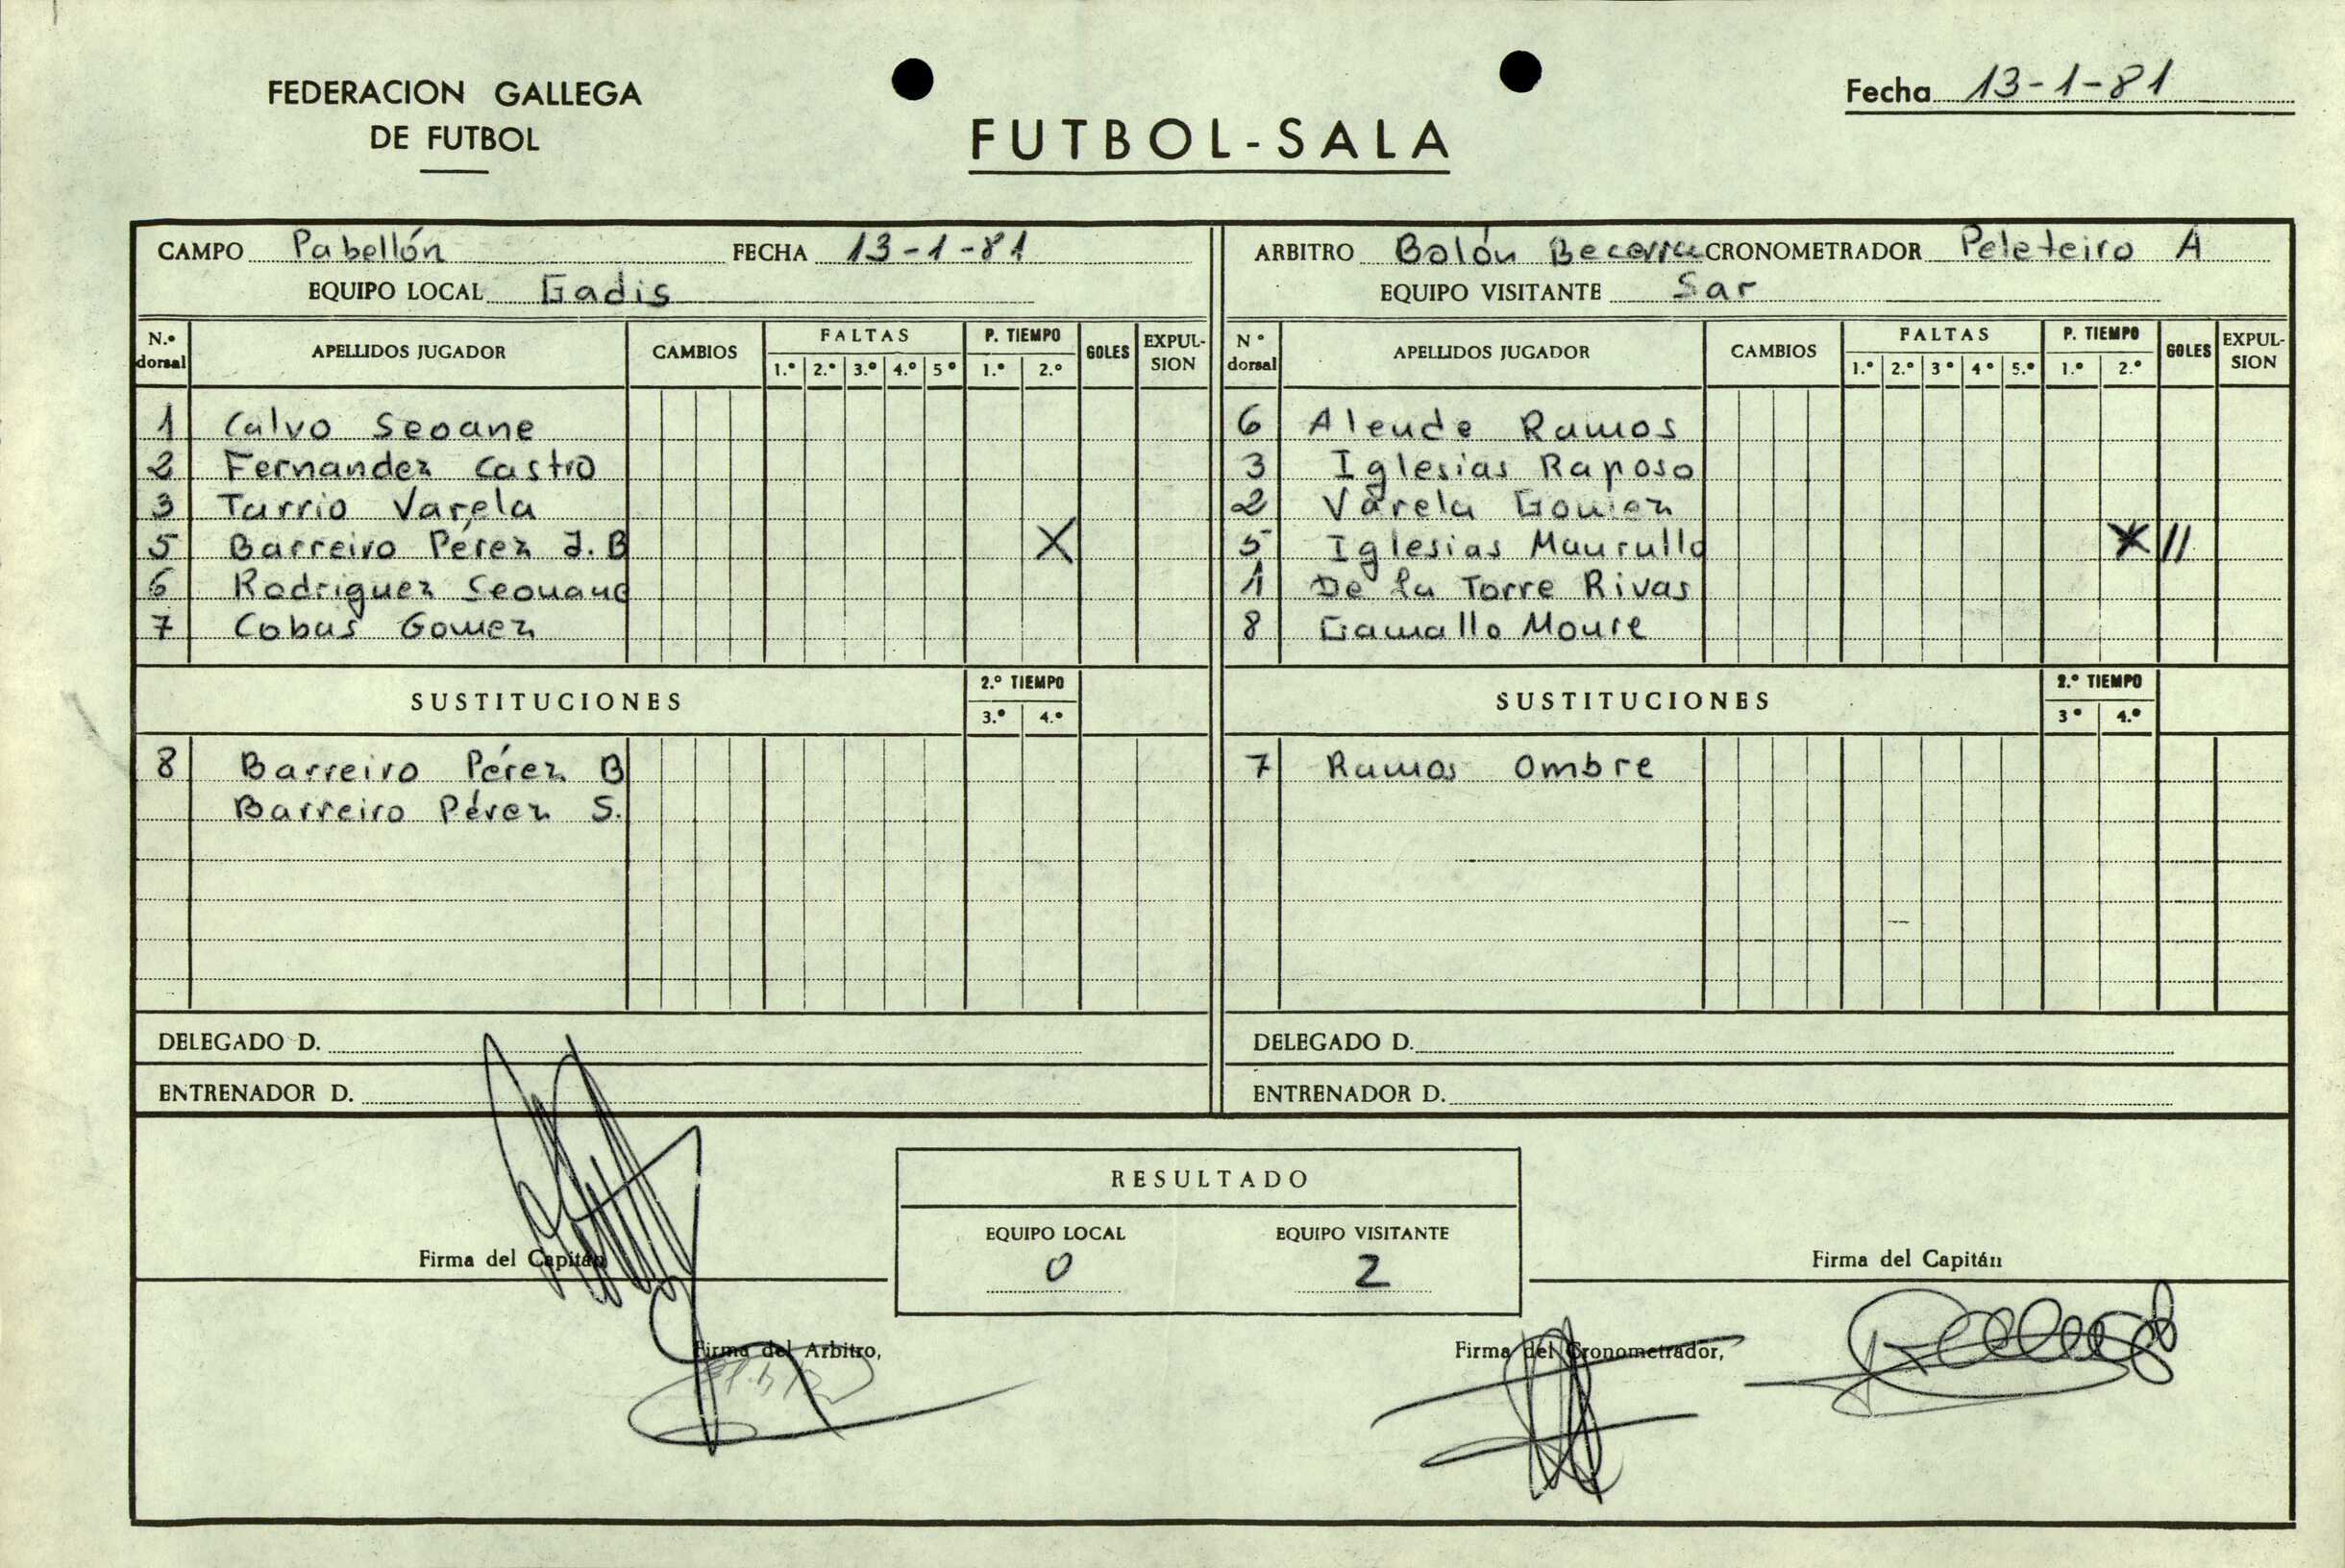 FEDERACION GALLEGA
DE FUTBOL
FUTBOL-SALA
Fecha 13-1-81
CAMPO Pabellón FECHA 13-1-81
EQUIPO LOCAL Gadis
N.º dorsal APELLIDOS JUGADOR CAMBIOS FALTAS 1.º 2.º 3.º 4.º 5º P. TIEMPO 1.º 2.º GOLES EXPUL-SION
1 Calvo Seoane
2 Fernandez Castro
3 Tarrio Varela
5 Barreiro Pérez J. B X
6 Rodriguez
7 Cobas Gomez
SUSTITUCIONES 2.º TIEMPO 3.º 4.º
8 Barreiro Pérez B
Barreiro Pérez S.
DELEGADO D.
ENTRENADOR D.
ARBITRO Bolón Becerra CRONOMETRADOR Peleteiro A
EQUIPO VISITANTE Sar
Nº dorsal APELLIDOS JUGADOR CAMBIOS FALTAS 1.º 2.º 3º 4º 5.º P. TIEMPO 1.º 2.º GOLES EXPUL-SION
6 Alende Ramos
3 Iglesias Raposo
2 Varela Gomez
5 Iglesias X //
1 De La Torre Rivas
8 Gamallo Moure
SUSTITUCIONES 2.º TIEMPO 3º 4.º
7 Ramos Ombre
DELEGADO D.
ENTRENADOR D.
Firma del Capitán
RESULTADO
EQUIPO LOCAL EQUIPO VISITANTE
0 2
Firma del Capitán
Firma del Arbitro,
Firma del Cronometrador,